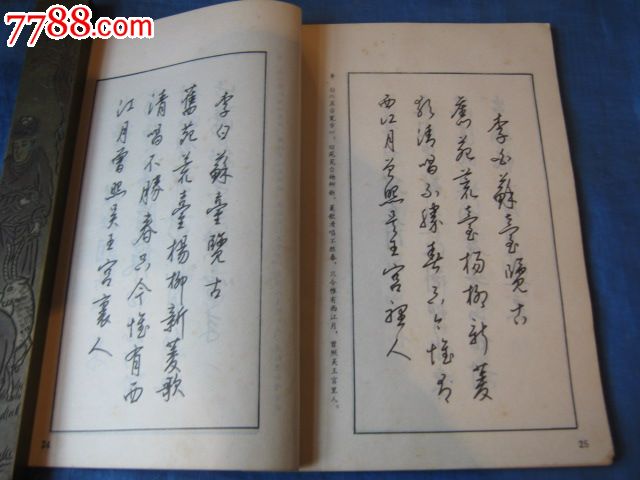 7788.com
李白蘇臺覽古
舊苑荒臺楊柳新菱歌
清唱不勝春只今惟有西
江月曾照吳王宮裏人
24
李白蘇臺覽古
舊苑荒臺楊柳新菱
歌清唱不勝春只今惟有
西江月曾照吳王宮裡人
李 白《苏台览古》：旧苑荒台杨柳新，菱歌清唱不胜春。只今惟有西江月，曾照吴王宫里人。
25